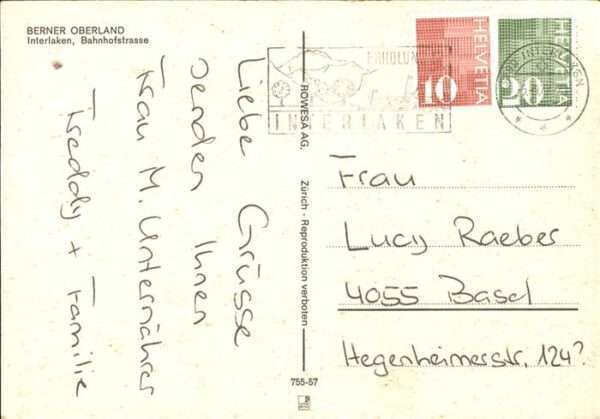 BERNER OBERLAND
Interlaken, Bahnhofstrasse
Liebe Grüsse
senden Ihnen
Frau M. Unternährer
Freddy + Familie
ROWESA AG. Zürich - Reproduktion verboten
755-57
INTERLAKEN
10 HELVETIA
20 HELVETIA
INTERLAKEN
Frau
Lucy Raeber
4055 Basel
Hegenheimerstr. 124?